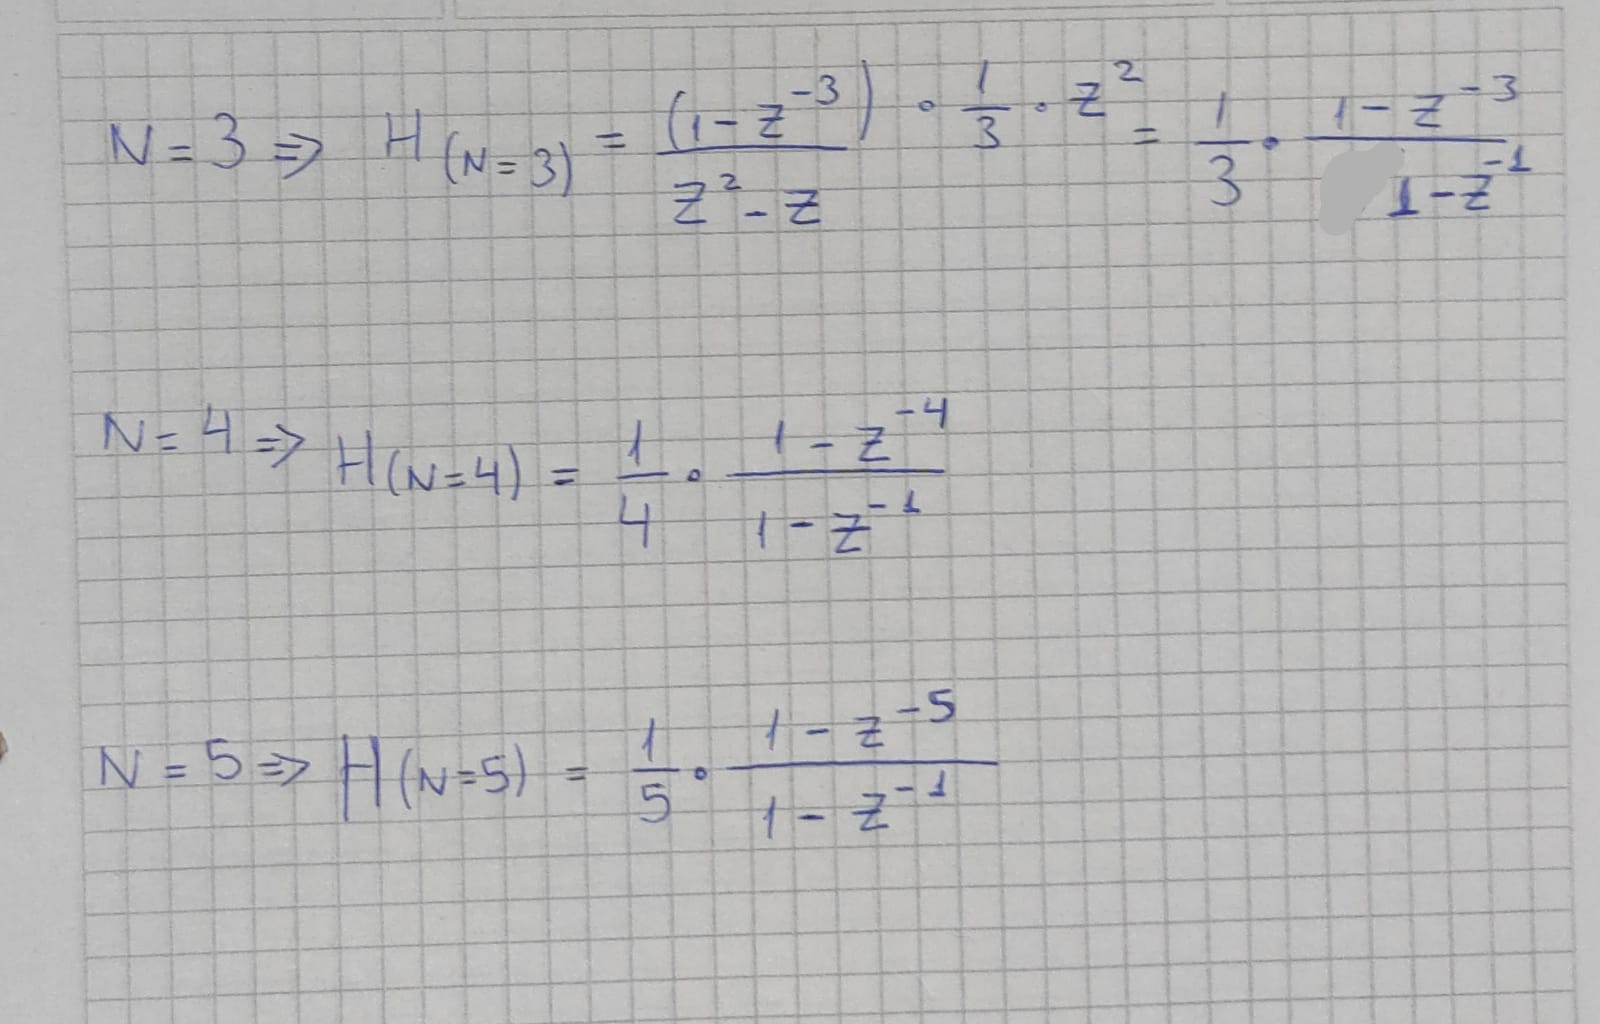 N = 3 ⇒ H(N=3) = (1 - z⁻³) / (z² - z) · 1/3 · z² = 1/3 · (1 - z⁻³) / (1 - z⁻¹)
N = 4 ⇒ H(N=4) = 1/4 · (1 - z⁻⁴) / (1 - z⁻¹)
N = 5 ⇒ H(N=5) = 1/5 · (1 - z⁻⁵) / (1 - z⁻¹)